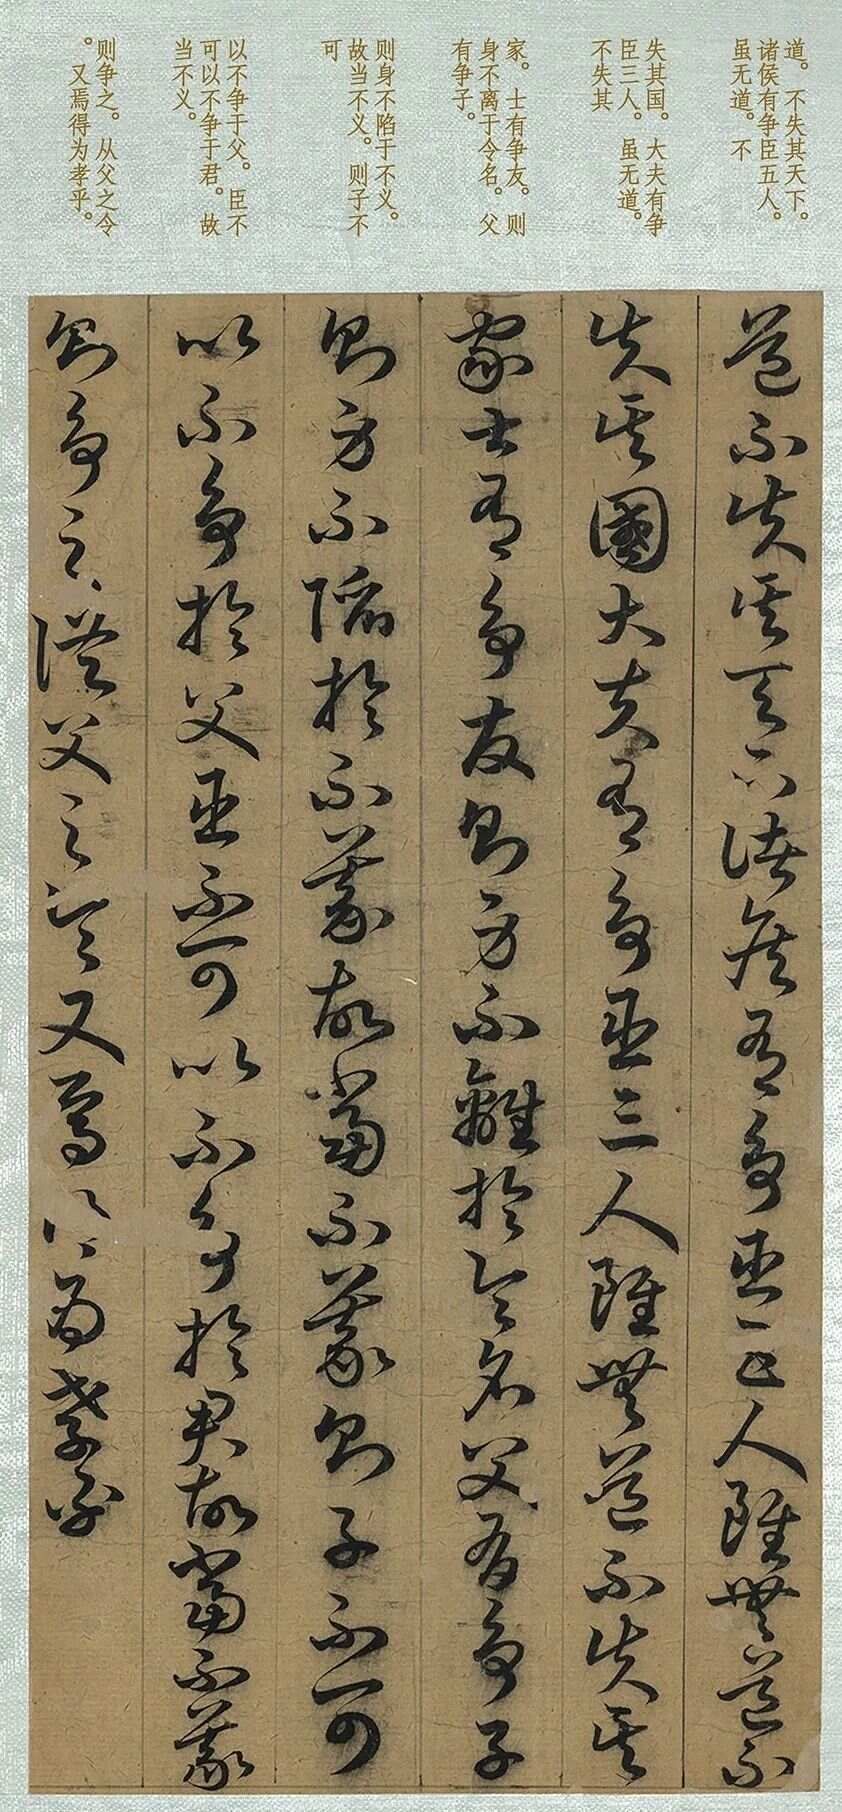 道。不失其天下。
诸侯有争臣五人。
虽无道。不
失其国。大夫有争
臣三人。虽无道。
不失其
家。士有争友。则
身不离于令名。父
有争子。
则身不陷于不义。
故当不义。则子不
可
以不争于父。臣不
可以不争于君。故
当不义。
则争之。从父之令
。又焉得为孝乎。
道不失其天下諸侯有争臣五人雖無道不
失其國大夫有争臣三人雖無道不失其
家士有争友則身不離於令名父有争子
則身不陷於不義故當不義則子不可
以不争於父臣不可以不争於君故當不義
則争之從父之令又焉得為孝乎